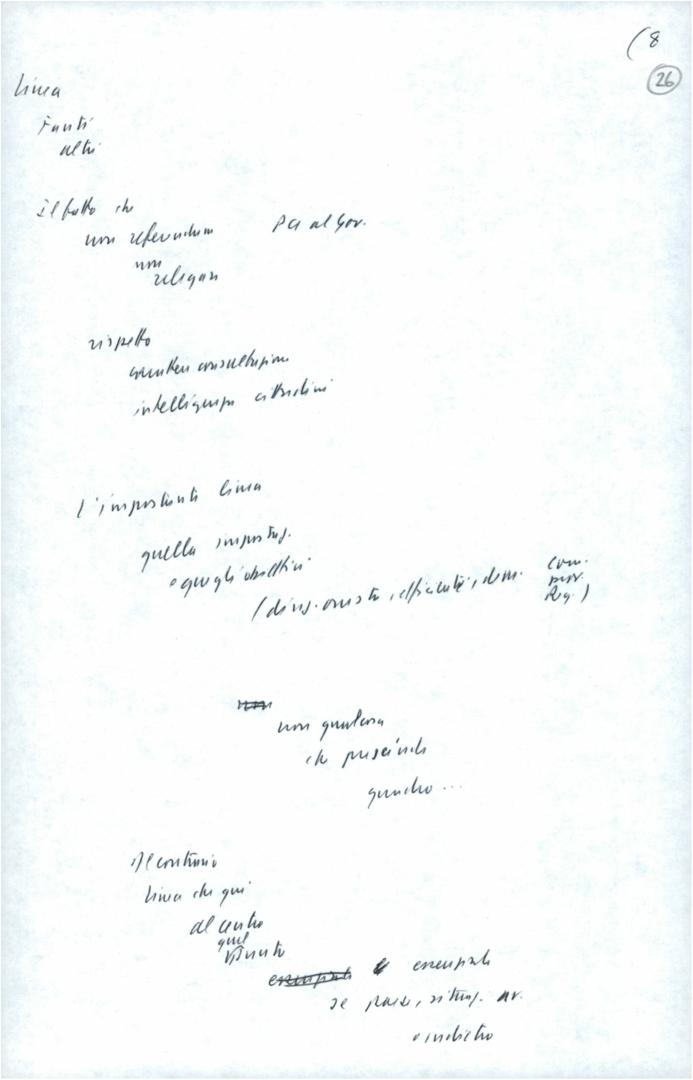 (8
26
Linea
Fanti
altri
Il fatto che
non referendum PCI al Gov.
non
relegare
rispetto
carattere consultazione
intelligenza cittadini
L'importante linea
quella impostaz.
e quegli obiettivi
(direz. onesta, efficiente, dem. com.
prov.
Reg.)
non
non qualcosa
che prescinde
quadro...
Al contrario
linea che qui
al centro
quel
essenziale è essenziale
se paese, situaz. av.
o indietro